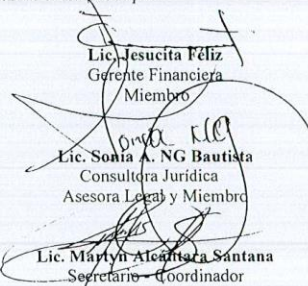 Lic. Jesucita Féliz
Gerente Financiera
Miembro
Lic. Sonia A. NG Bautista
Consultora Jurídica
Asesora Legal y Miembro
Lic. Martyn Alcántara Santana
Secretario - Coordinador